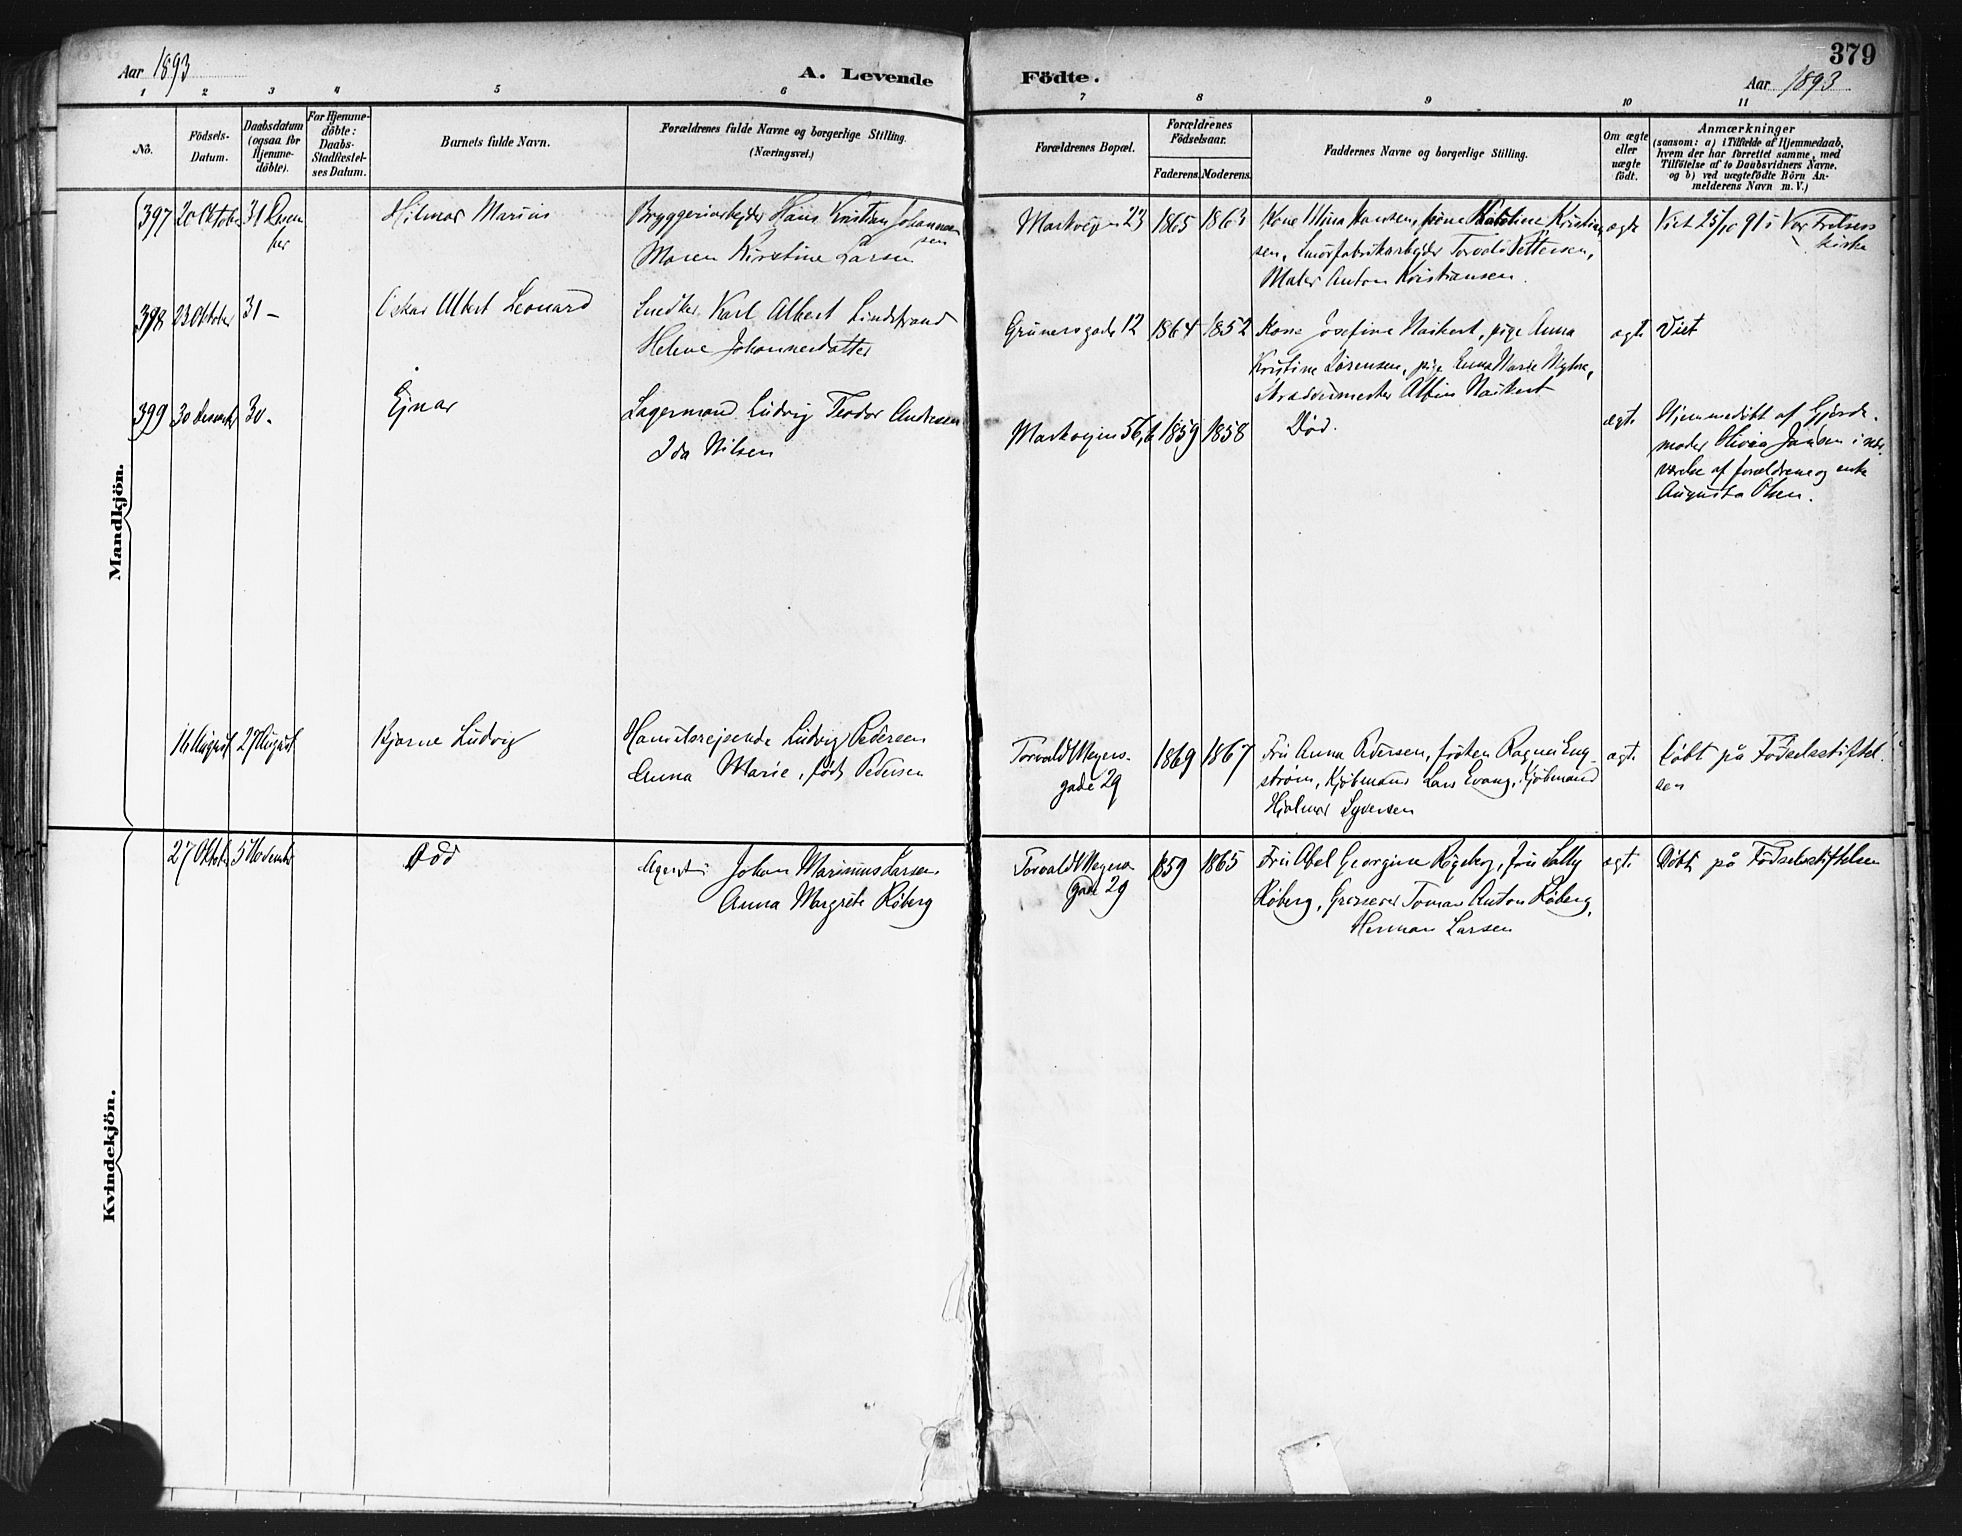 Aar 1893
A. Levende Födte.
379
Aar 1893
1 2 3 4 5 6 7 8 9 10 11
No.
Födsels-
Datum.
Daabsdatum
(ogsaa for
Hjemme-
döbte).
For Hjemme-
döbte:
Daabs-
Stadfæstel-
ses Datum.
Barnets fulde Navn.
Forældrenes fulde Navne og borgerlige Stilling.
(Næringsvei.)
Forældrenes Bopæl.
Forældrenes
Födselsaar.
Faderens. Moderens.
Faddernes Navne og borgerlige Stilling.
Om ægte
eller
uægte
födt.
Anmærkninger
(saasom: a) i Tilfælde af Hjemmedaab,
hvem der har forrettet samme, med
Tilföielse af to Daabsvidners Navne.
og b) ved uægtefödte Börn An-
melderens Navn m. V.)
Mandkjön.
397 20 Oktober 31 Desem
ber
Hilmar Marius
Bryggeriarbejder Hans Kristian Johannes
sen
Maren Kirstine Larsen
Markvejen 23 1865 1863
Kone Mina Hansen, kone Karoline Kristian
sen, Smørfabrikarbejder Torvald Pettersen,
Maler Anton Kristiansen.
ægte
Viet 25/10 91 i Vor Frelsers
kirke
398 23 Oktober 31 –
Oskar Albert Leonard
Snedker Karl Albert Lindstrand
Helene Johannesdatter
Grünersgade 12 1864 1852
Kone Josefine Haikert, pige Anna
Kristine Sørensen, pige Anna Marie
Skræddermester Albin Haikert
ægte
Viet
399 30 Desember 30 –
Ejnar
Lagermand Ludvig Teodor Andresen
Ida Nilsen
Markvejen 56, b 1859 1858
Død.
ægte
Hjemmedøbt af Gjorde-
moder Olivia Jansen i nær-
værelse af forældrene og enke
Augusta Olsen.
16 August 27 August
Bjarne Ludvig
Handelsrejsende Ludvig Pedersen
Anna Marie, født Pedersen
Torvald Meyers-
gade 29
1869 1867
Fru Anna Pedersen, frøken Ragna Eng-
strøm, Kjøbmand Lars Evang, Kjøbmand
Hjalmar Syversen
ægte
Døbt på Fødselsstiftel
sen
Kvindekjön.
27 Oktober 5 November
Død
Agent Johan Marinius Larsen,
Anna Margrete Røberg
Torvald Meyers
gade 29
1859 1865
Fru Abel Georgine Røgeberg, fru Sally
Røberg, Grosserer Tomas Anton Røberg,
Herman Larsen
ægte
Døbt på Fødselsstiftelsen